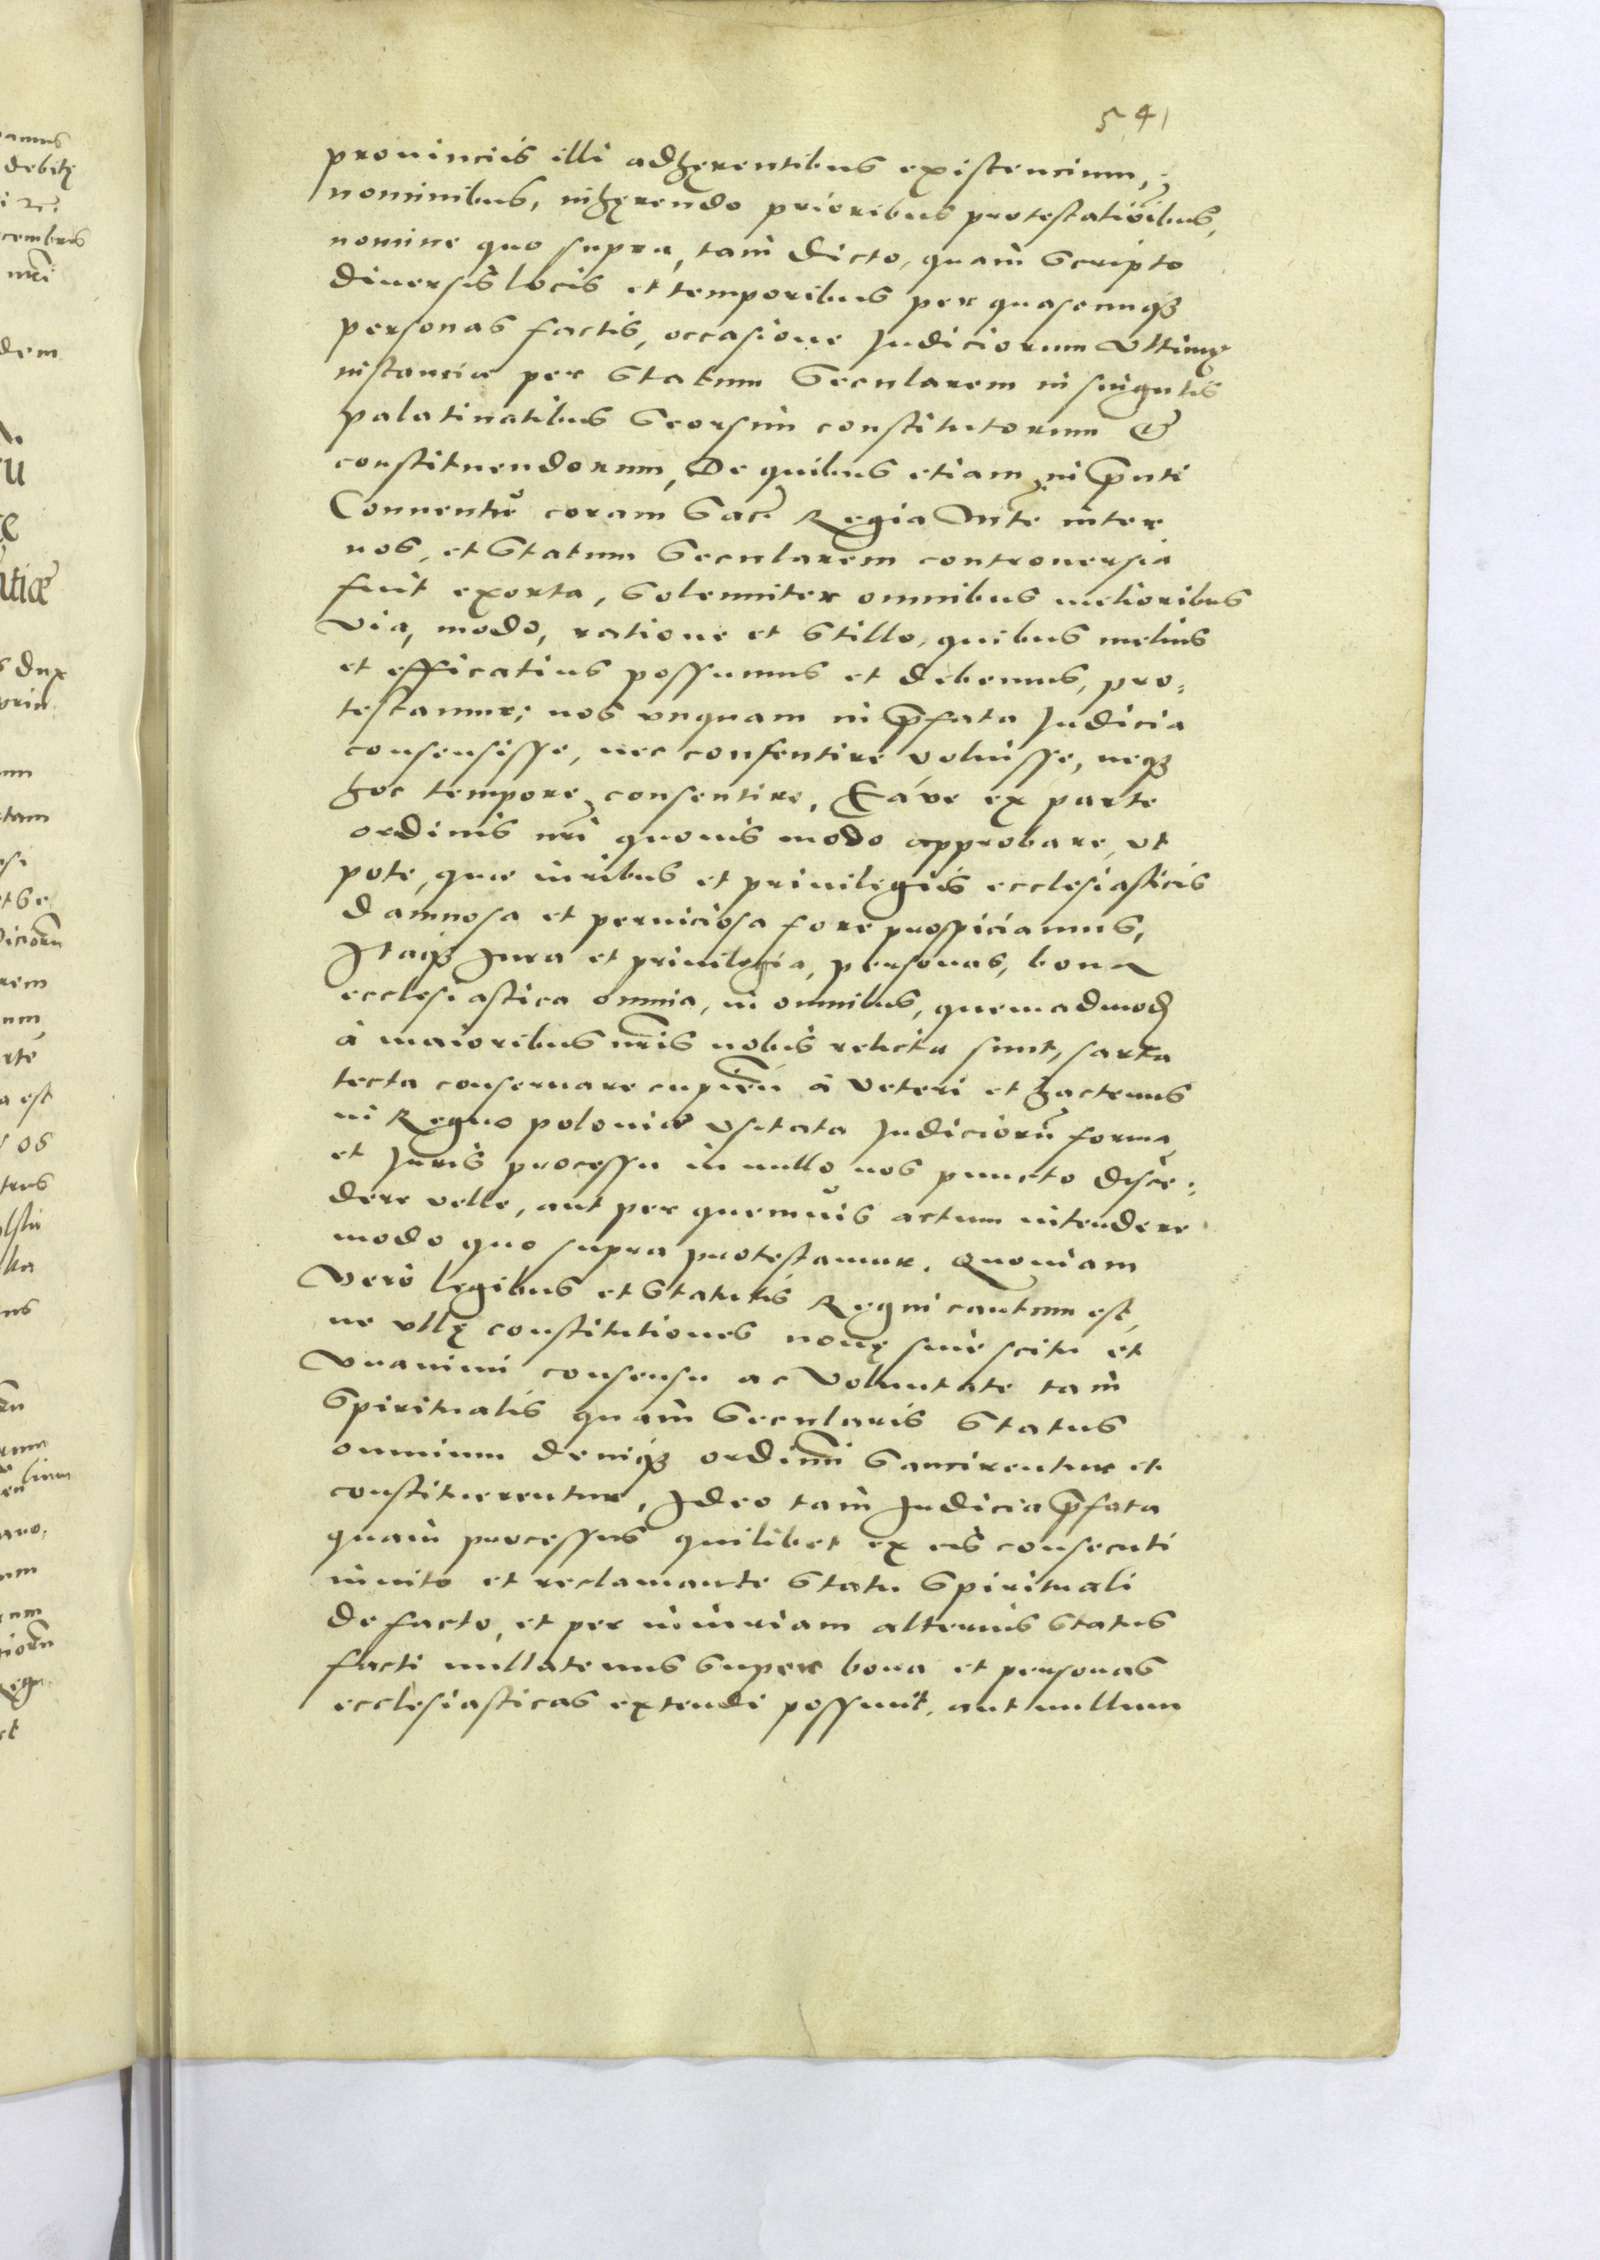 541
prouinciis illi adhęrentibus existencium,
nominibus, inhęrendo prioribus protestatiõibus,
nomine quo supra, tam dicto, quam Scripto
diuersis locis et temporibus per quascunqꝫ
personas factis, occasione Judiciorum Vltimę
instantiæ per Statum Secularem in singulis
palatinatibus Seorsim constitutorum &
constituendorum, De quibus etiam in p̃nti
Conuentu coram Sacr̃ Regia Mte inter
nos, et Statum Secularem controuersia
fuit exorta, Solenniter omnibus melioribus
via, modo, ratione et Stillo, quibus melius
et efficatius possumus et debemus, pro„
testamur; nos vnquam in p̃fata Judicia
consensisse, nec consentire voluisse, neqꝫ
hoc tempore consentire, Eáve ex parte
ordinis nr̃i quouis modo approbare, vt
pote, quæ iuribus et priuilegiis ecclesiasticis
damnosa et perniciosa fore prospiciamus,
Itaqꝫ Jura et priuilegia, personas, bona
ecclesiastica omnia, in omnibus, quemadmodũ
à maioribus nr̃is nobis relicta sunt, sarta
tecta conseruare cupien̄ à veteri et hactenus
in Regno poloniæ vsitata Judiciorũ forma
et Juris processu in nullo nos puncto disce„
dere velle, aut per quemuis actum intendere
modo quo supra protestamur. Quoniam
Vero legibus et Statutis Regni cautum est,
ne vllę constitutiones nouę sine scitu et
Vnanimi consensu ac Voluntate tam
Spiritualis quam Secularis Status
omnium deniqꝫ ordinũ Sancirentur et
constituerentur, Ideo tam Judicia p̃fata
quam processus quilibet ex eis consecuti
inuito et reclamante Statu Spirituali
de facto, et per iniuriam alterius Status
facti nullatenus Super bona et personas
ecclesiasticas extendi possunt, aut nullum